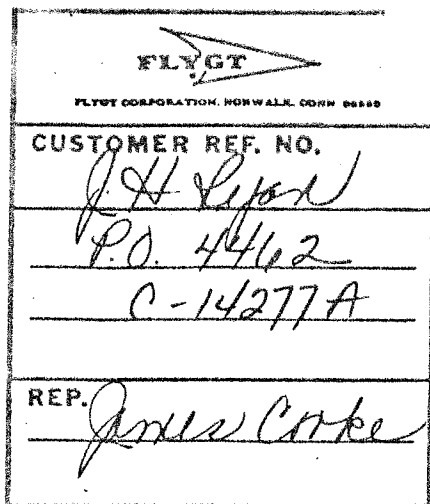 FLYGT
FLYGT CORPORATION, NORWALK, CONN
CUSTOMER REF. NO.
J. H Ryan
P.O. 4462
C-14277A
REP.
James Cooke